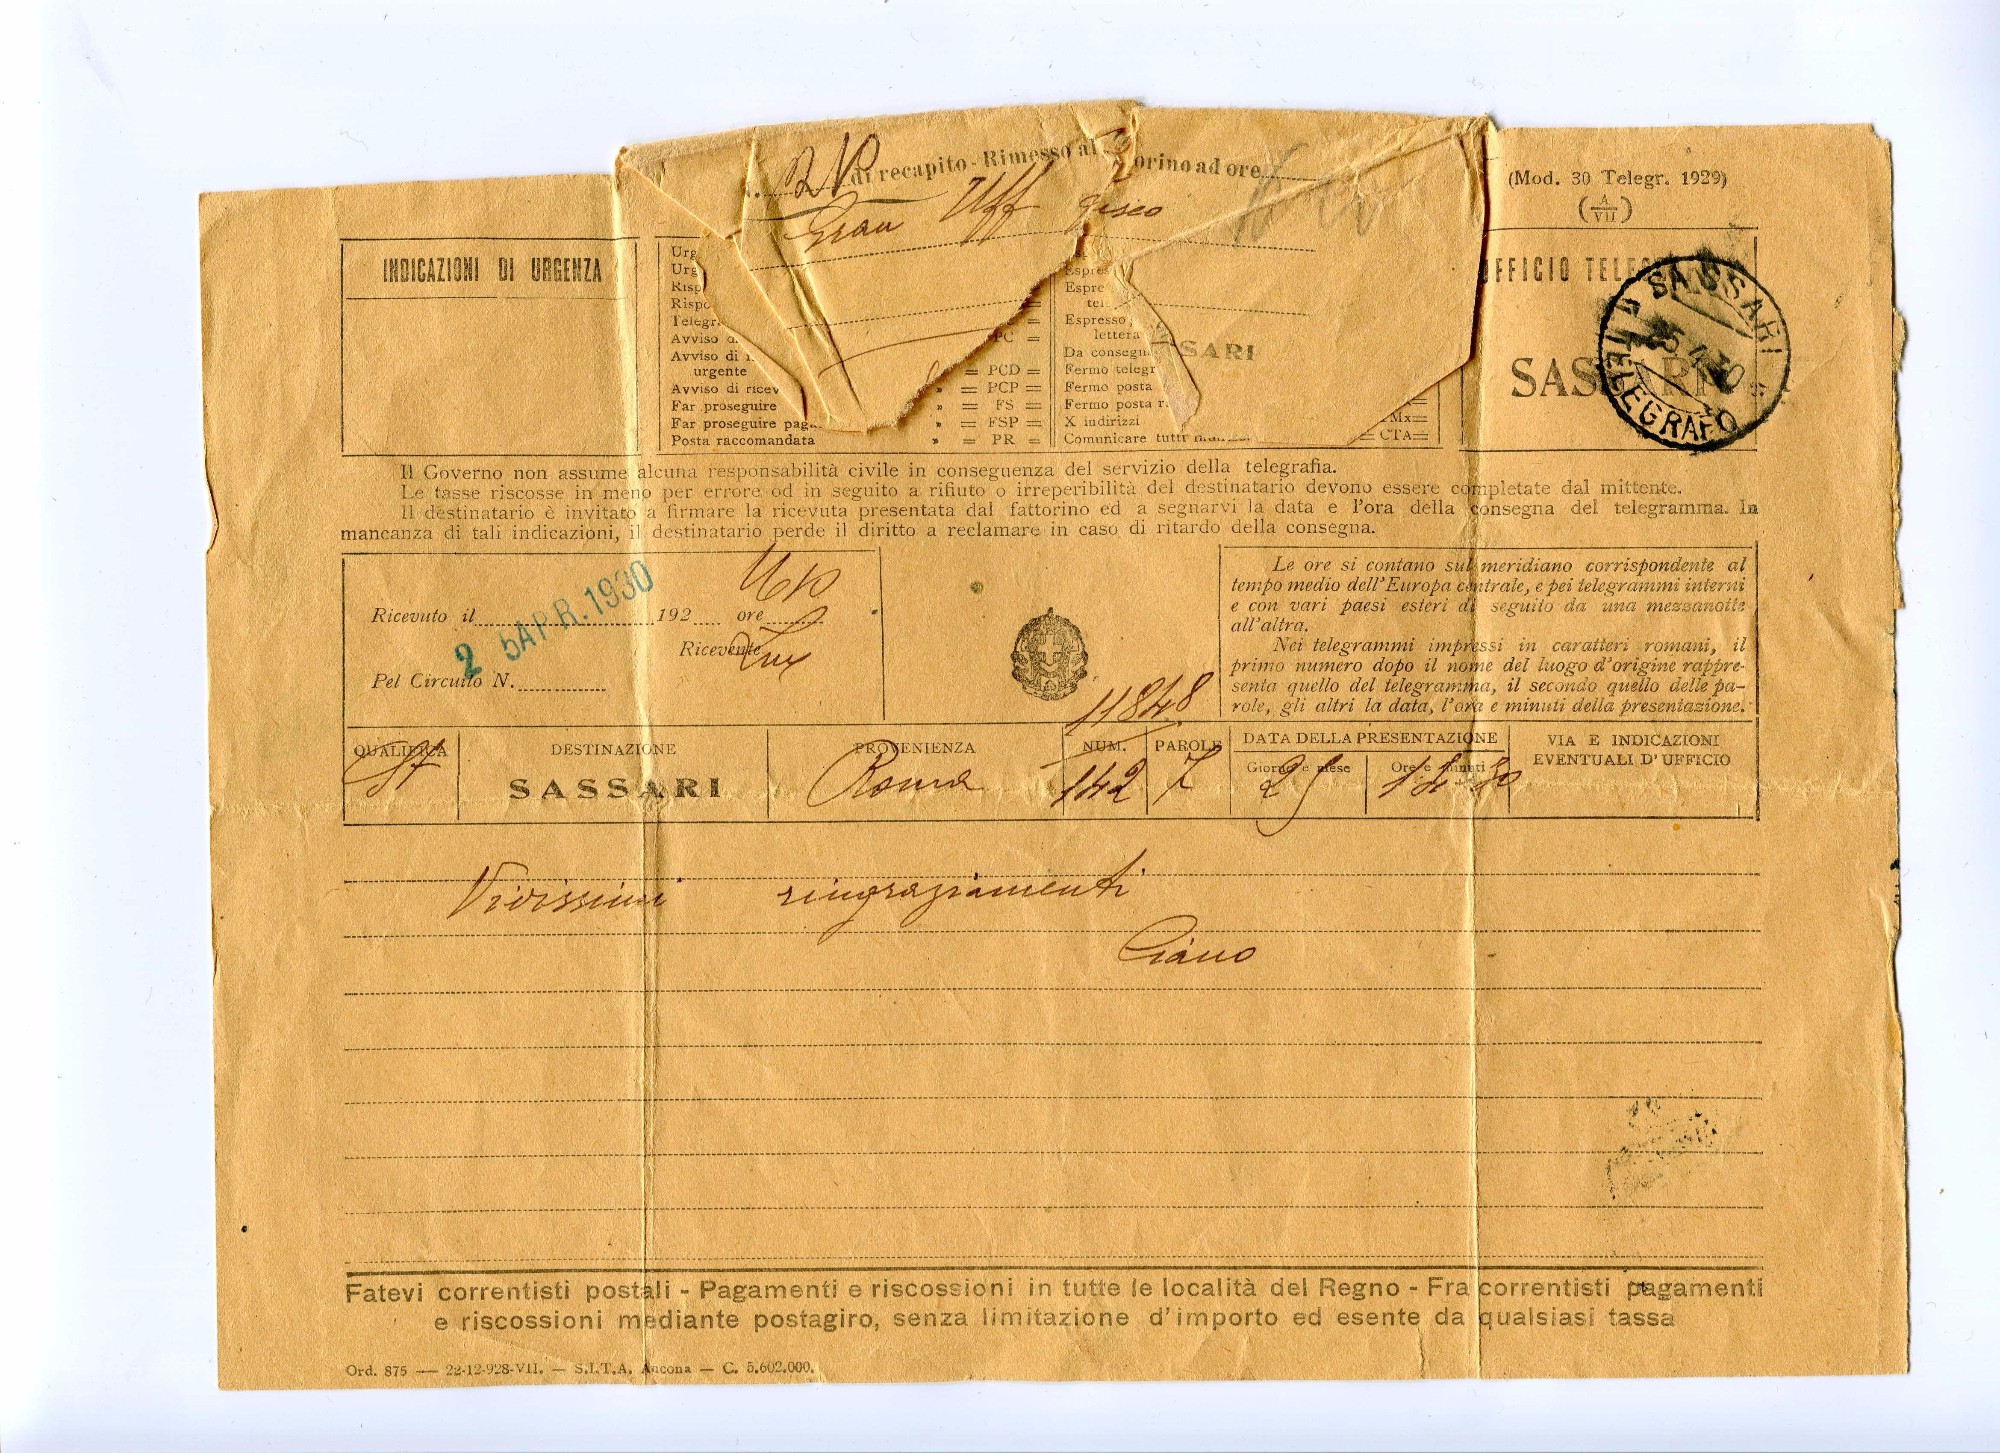 di recapito - Rimesso al orino ad ore
Grau Uff
(Mod. 30 Telegr. 1929)
(A/VII)
INDICAZIONI DI URGENZA
Urg
Urg
Risp
Rispo
Telegr.
Avviso d
Avviso di
urgente = PCD =
Avviso di ricev » = PCP =
Far proseguire » = FS =
Far proseguire pag » = FSP =
Posta raccomandata » = PR =
Espre
Espre
tel.
Espresso
lettera
Da consegn
Fermo telegr
Fermo posta
Fermo posta r.
X indirizzi Mx=
Comunicare tutti = CTA=
SARI
UFFICIO TELEG
SASSARI
SASSARI
25 4 30
TELEGRAFO
Il Governo non assume alcuna responsabilità civile in conseguenza del servizio della telegrafia.
Le tasse riscosse in meno per errore od in seguito a rifiuto o irreperibilità del destinatario devono essere completate dal mittente.
Il destinatario è invitato a firmare la ricevuta presentata dal fattorino ed a segnarvi la data e l'ora della consegna del telegramma. In
mancanza di tali indicazioni, il destinatario perde il diritto a reclamare in caso di ritardo della consegna.
Ricevuto il 192 ore
2 5 APR. 1930
Ricevente
Pel Circuito N.
Le ore si contano sul meridiano corrispondente al
tempo medio dell'Europa centrale, e pei telegrammi interni
e con vari paesi esteri di seguito da una mezzanotte
all'altra.
Nei telegrammi impressi in caratteri romani, il
primo numero dopo il nome del luogo d'origine rappre-
senta quello del telegramma, il secondo quello delle pa-
role, gli altri la data, l'ora e minuti della presentazione.
11848
QUALIFICA DESTINAZIONE PROVENIENZA NUM. PAROLE DATA DELLA PRESENTAZIONE VIA E INDICAZIONI
Giorno e mese Ore e minuti EVENTUALI D'UFFICIO
St SASSARI Roma 142 7 25
Vivissimi ringraziamenti
Ciano
Fatevi correntisti postali - Pagamenti e riscossioni in tutte le località del Regno - Fra correntisti pagamenti
e riscossioni mediante postagiro, senza limitazione d'importo ed esente da qualsiasi tassa
Ord. 875 — 22-12-928-VII. — S.I.T.A. Ancona — C. 5.602.000.